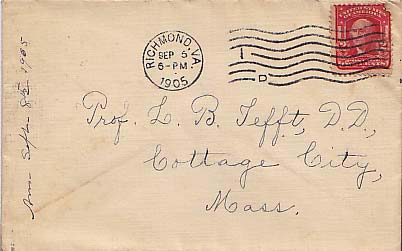 RICHMOND, VA.
SEP 5
6-PM
1905
1
D
Prof. L. B. Tefft, D.D.,
Cottage City,
Mass.
Ans. Sept. 8th 1905